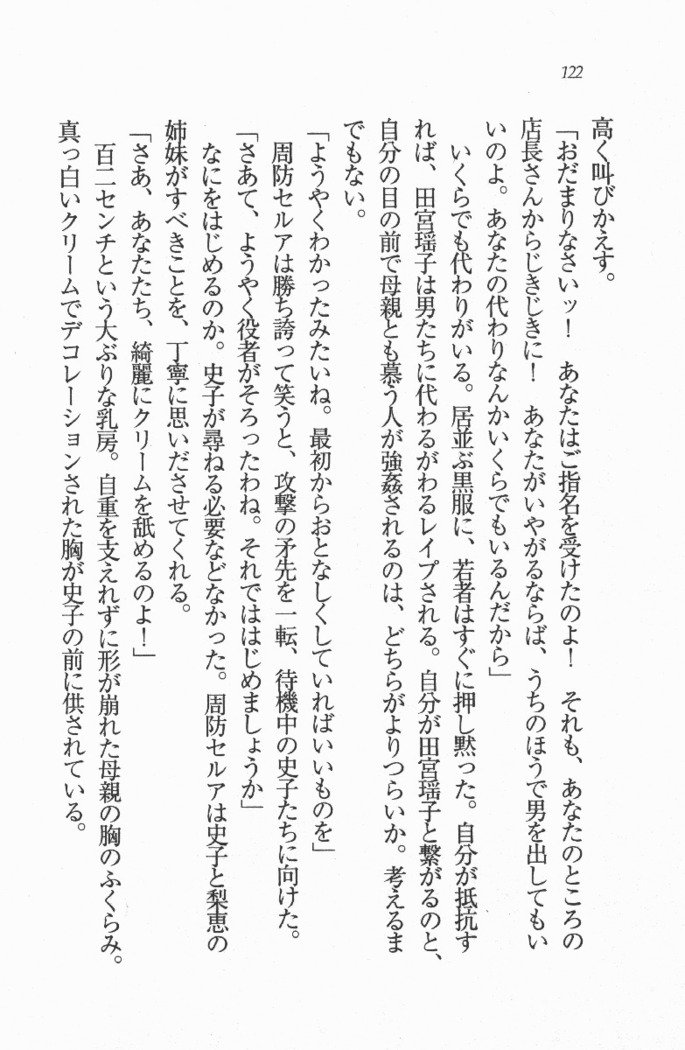 122
高く叫びかえす。
「おだまりなさいッ！　あなたはご指名を受けたのよ！　それも、あなたのところの
店長さんからじきじきに！　あなたがいやがるならば、うちのほうで男を出してもい
いのよ。あなたの代わりなんかいくらでもいるんだから」
いくらでも代わりがいる。居並ぶ黒服に、若者はすぐに押し黙った。自分が抵抗す
れば、田宮瑶子は男たちに代わるがわるレイプされる。自分が田宮瑶子と繋がるのと、
自分の目の前で母親とも慕う人が強姦されるのは、どちらがよりつらいか。考えるま
でもない。
「ようやくわかったみたいね。最初からおとなしくしていればいいものを」
周防セルアは勝ち誇って笑うと、攻撃の矛先を一転、待機中の史子たちに向けた。
「さあて、ようやく役者がそろったわね。それでははじめましょうか」
なにをはじめるのか。史子が尋ねる必要などなかった。周防セルアは史子と梨恵の
姉妹がすべきことを、丁寧に思いださせてくれる。
「さあ、あなたたち、綺麗にクリームを舐めるのよ！」
百二センチという大ぶりな乳房。自重を支えれずに形が崩れた母親の胸のふくらみ。
真っ白いクリームでデコレーションされた胸が史子の前に供されている。